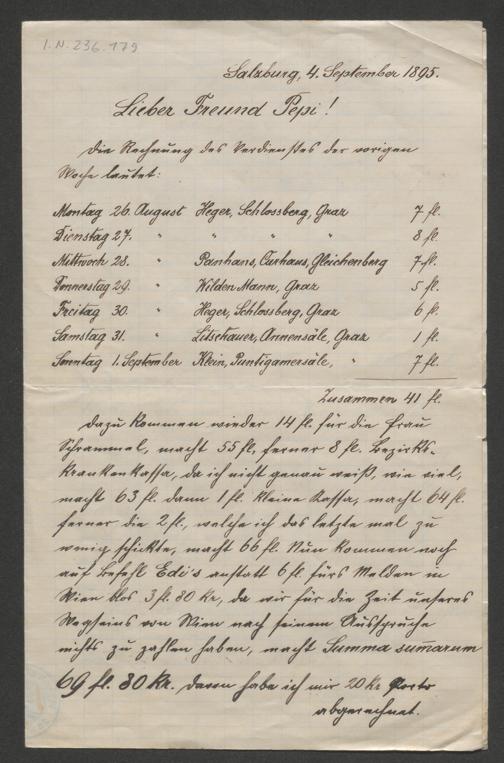 I.N. 236.179
Salzburg, 4. September 1895.
Lieber Freund Pepi!
Die Rechnung des Verdienstes der vorigen
Woche lautet:
Montag 26. August Heger, Schlossberg, Graz 7 fl.
Dienstag 27. " " " " 8 fl.
Mittwoch 28. " Panhans, Curhaus, Gleichenberg 7 fl.
Donnerstag 29. " Wilden Mann, Graz 5 fl.
Freitag 30. " Heger, Schlossberg, Graz 6 fl.
Samstag 31. " Litschauer, Annensäle, Graz 1 fl.
Sonntag 1. September Klein, Puntigamersäle, " 7 fl.
Zusammen 41 fl.
Dazu kommen wieder 14 fl. für die Frau
Schrammel, macht 55 fl, ferner 8 fl. Bezirks-
krankenkassa, da ich nicht genau weiß, wie viel,
macht 63 fl. dann 1 fl. kleine Kassa, macht 64 fl.
ferner die 2 fl., welche ich das letzte mal zu
wenig schickte, macht 66 fl. Nun kommen noch
auf Befehl Edi's anstatt 6 fl. fürs Melden in
Wien blos 3 fl. 80 kr, da wir für die Zeit unseres
Wegseins von Wien nach seinem Ausspruche
nichts zu zahlen haben, macht Summa sum̄arum
69 fl. 80 kr. davon habe ich mir 20 kr Porto
abgerechnet.